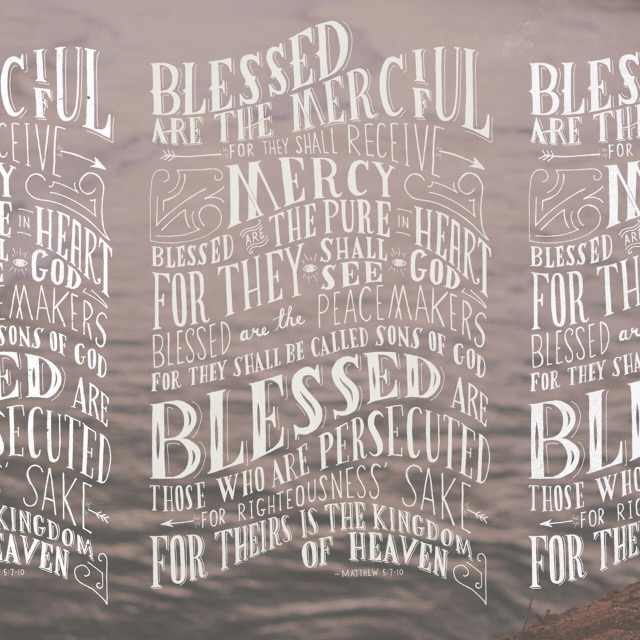 BLESSED
ARE THE MERCIFUL
FOR THEY SHALL RECEIVE
MERCY
BLESSED ARE THE PURE IN HEART
FOR THEY SHALL SEE GOD
BLESSED are the PEACEMAKERS
FOR THEY SHALL BE CALLED SONS OF GOD
BLESSED ARE
THOSE WHO ARE PERSECUTED
FOR RIGHTEOUSNESS' SAKE
FOR THEIRS IS THE KINGDOM
OF HEAVEN
- MATTHEW 5:7-10
CIFUL
CEIVE
Y
E IN HEART
L
E GOD
MAKERS
SONS OF GOD
ED ARE
SECUTED
' SAKE
KINGDOM
EAVEN
5:7-10
BLESS
ARE THE
FOR
M
BLESSED AR
FOR TH
BLESSED ar
FOR THEY SHA
BLE
THOSE WHO
FOR RIG
FOR THE